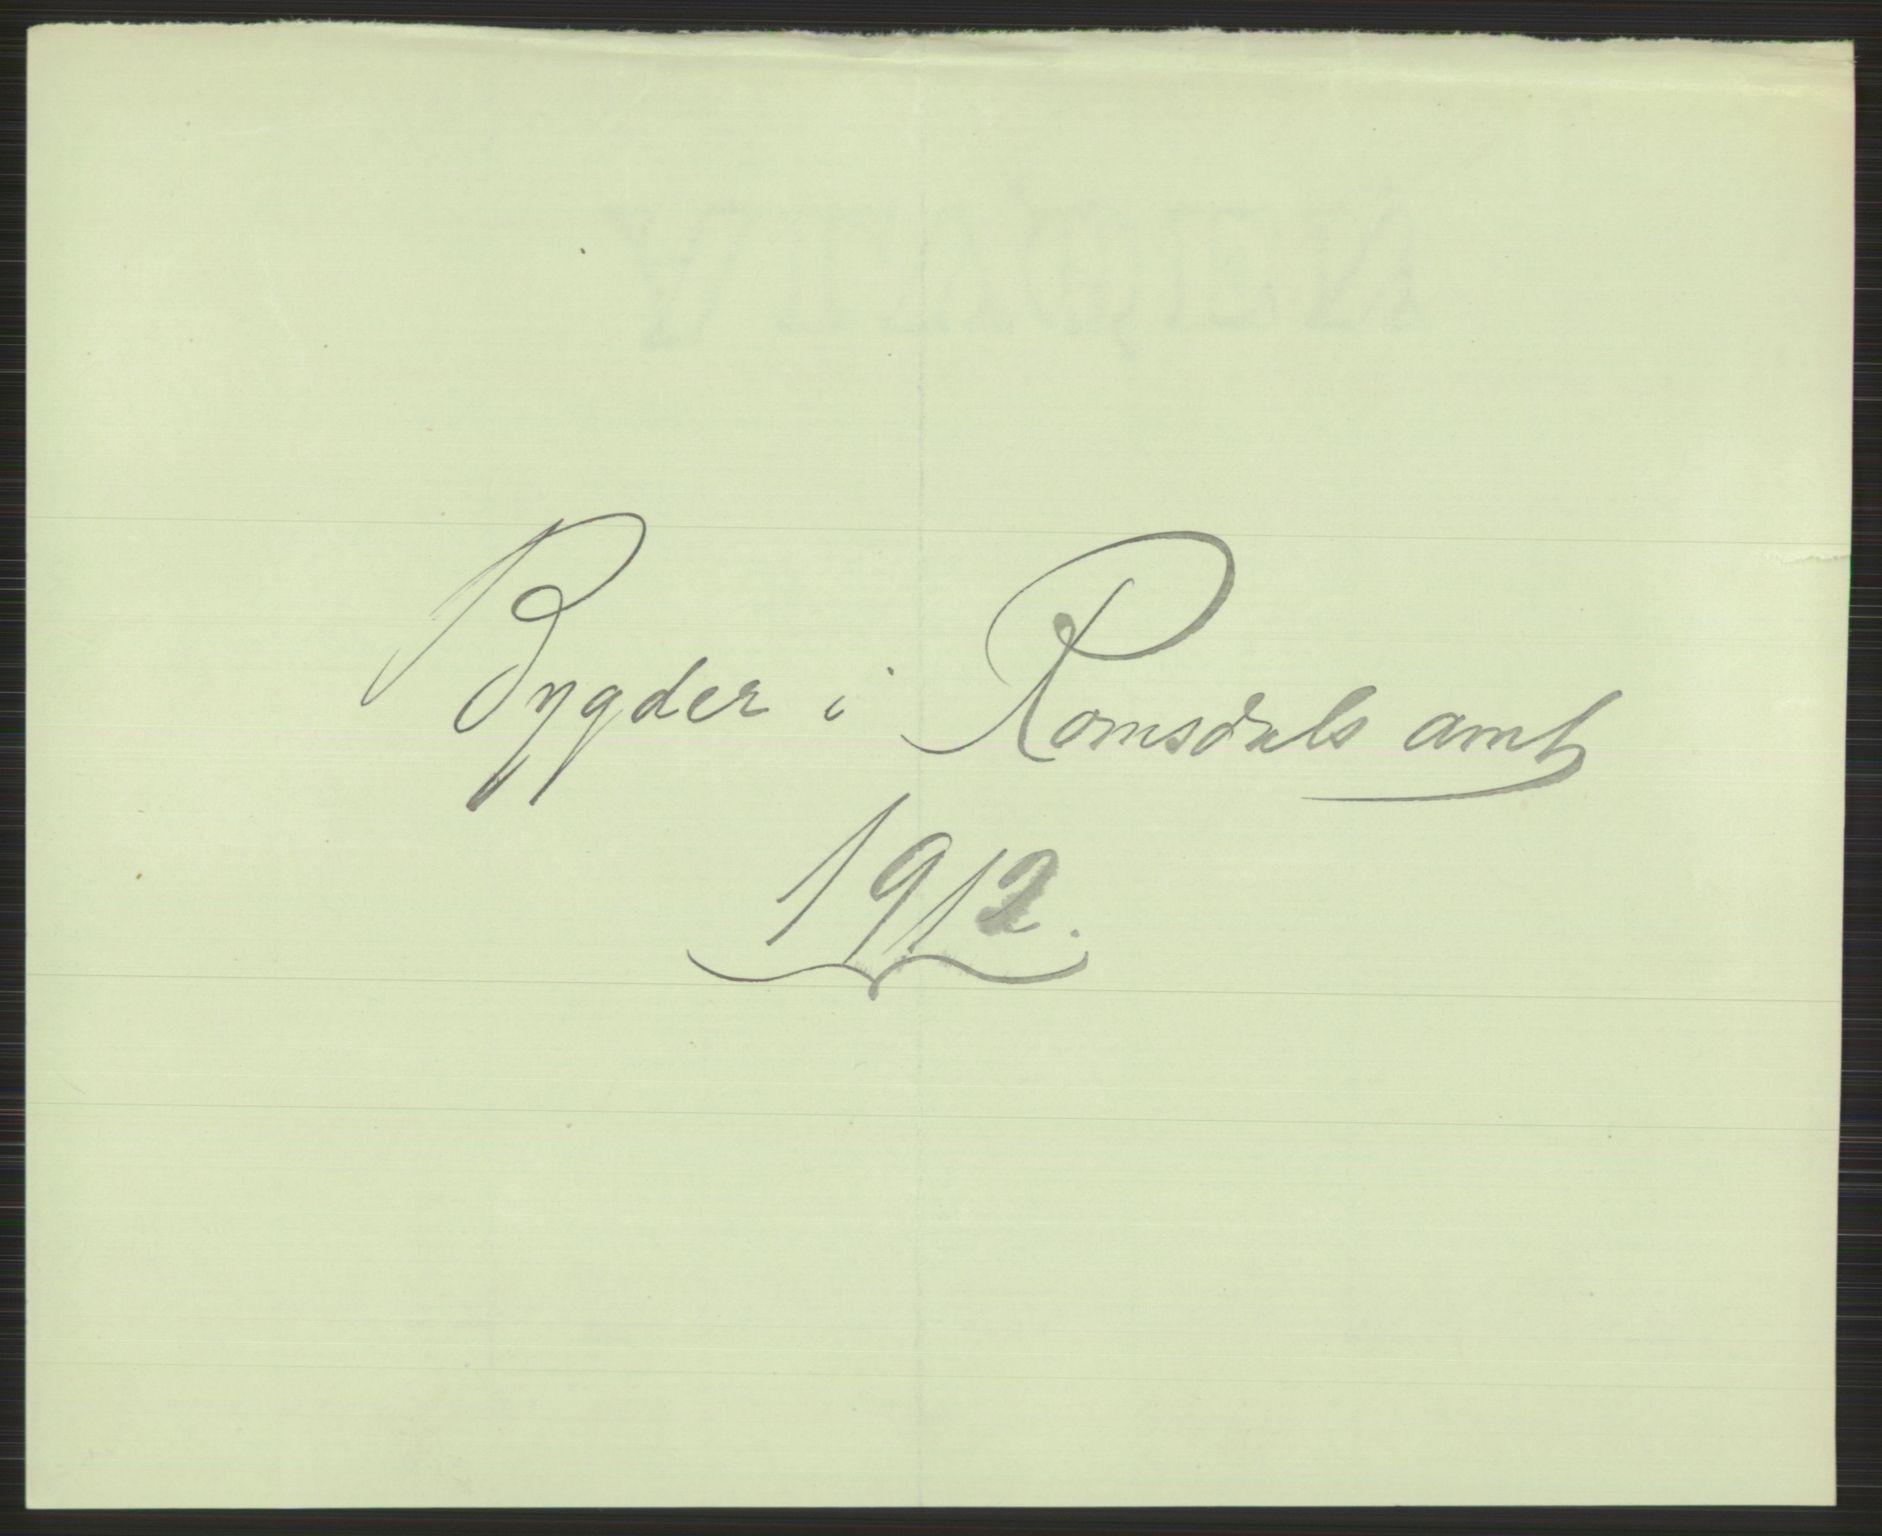 Bygder i Romsdals amt
1912.